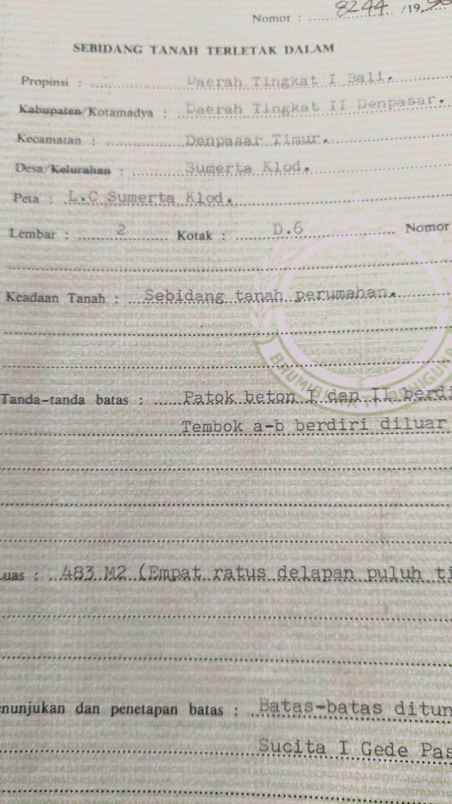 Nomor : 8244 /19
SEBIDANG TANAH TERLETAK DALAM
Propinsi : Daerah Tingkat I Bali.
Kabupaten/Kotamadya : Daerah Tingkat II Denpasar.
Kecamatan : Denpasar Timur.
Desa/Kelurahan : Sumerta Klod.
Peta : L.C Sumerta Klod.
Lembar : 2 Kotak : D.6 Nomor
Keadaan Tanah : Sebidang tanah perumahan.
Tanda-tanda batas : Patok beton I dan II berdi
Tembok a-b berdiri diluar
uas : 483 M2 (Empat ratus delapan puluh ti
nunjukan dan penetapan batas : Batas-batas ditun
Sucita I Gede Pas